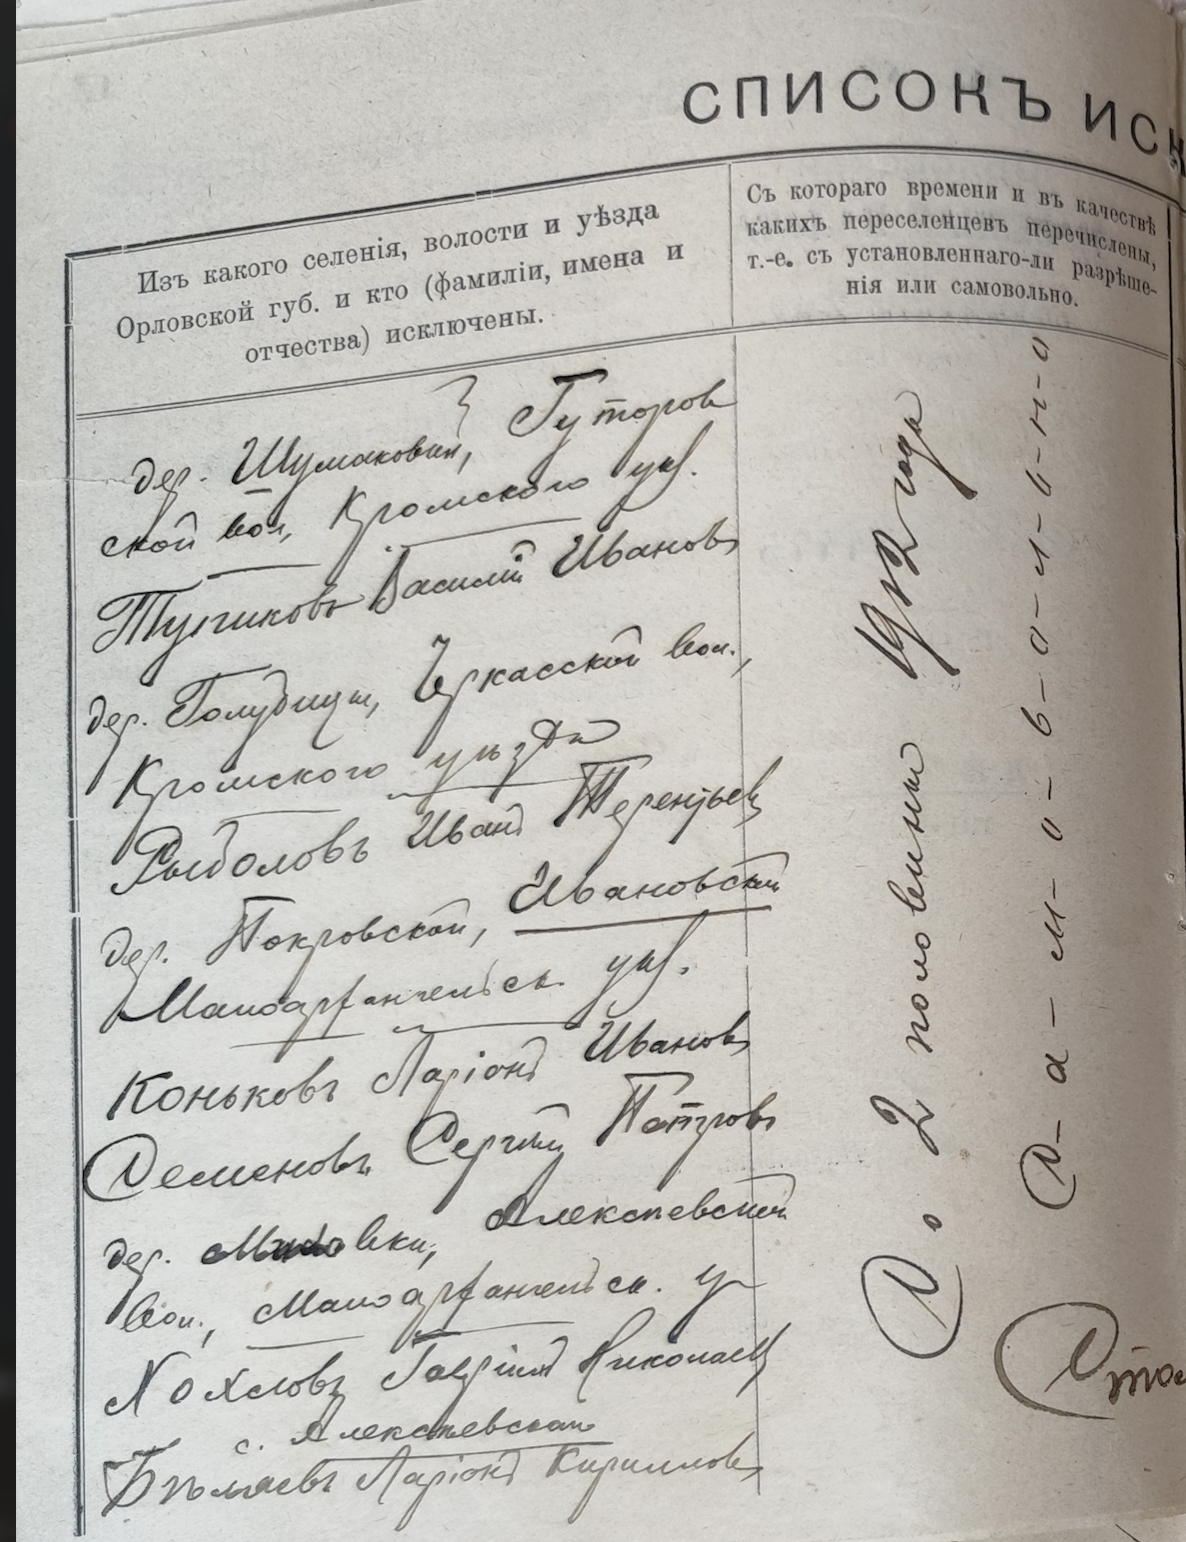 СПИСОКЪ ИСК
Изъ какого селенія, волости и уѣзда
Орловской губ. и кто (фамиліи, имена и
отчества) исключены.
Съ котораго времени и въ качествѣ
какихъ переселенцевъ перечислены,
т.-е. съ установленнаго-ли разрѣше-
нія или самовольно.
дер. Шумаковки, Гуторов
ской вол, Кромского уѣз.
Василій Ивановъ
дер. Голубицы, Черкасской вол.,
Кромского уѣзда
Рыболовъ Иванъ Терентьев
дер. Покровской, Ивановской
Малоархангельск. уѣз.
Коньковъ Ларіонъ Ивановъ
Семеновъ Сергѣй Петровъ
дер. Алексѣевской
вол., Малоархангельск. у
Хохловъ Гавріилъ Николаев
с. Алексѣевское
Бѣляевъ Ларіонъ Кирилловъ
Со 2 половины 1912 года
С-а-м-о-в-о-л-ь-н-о